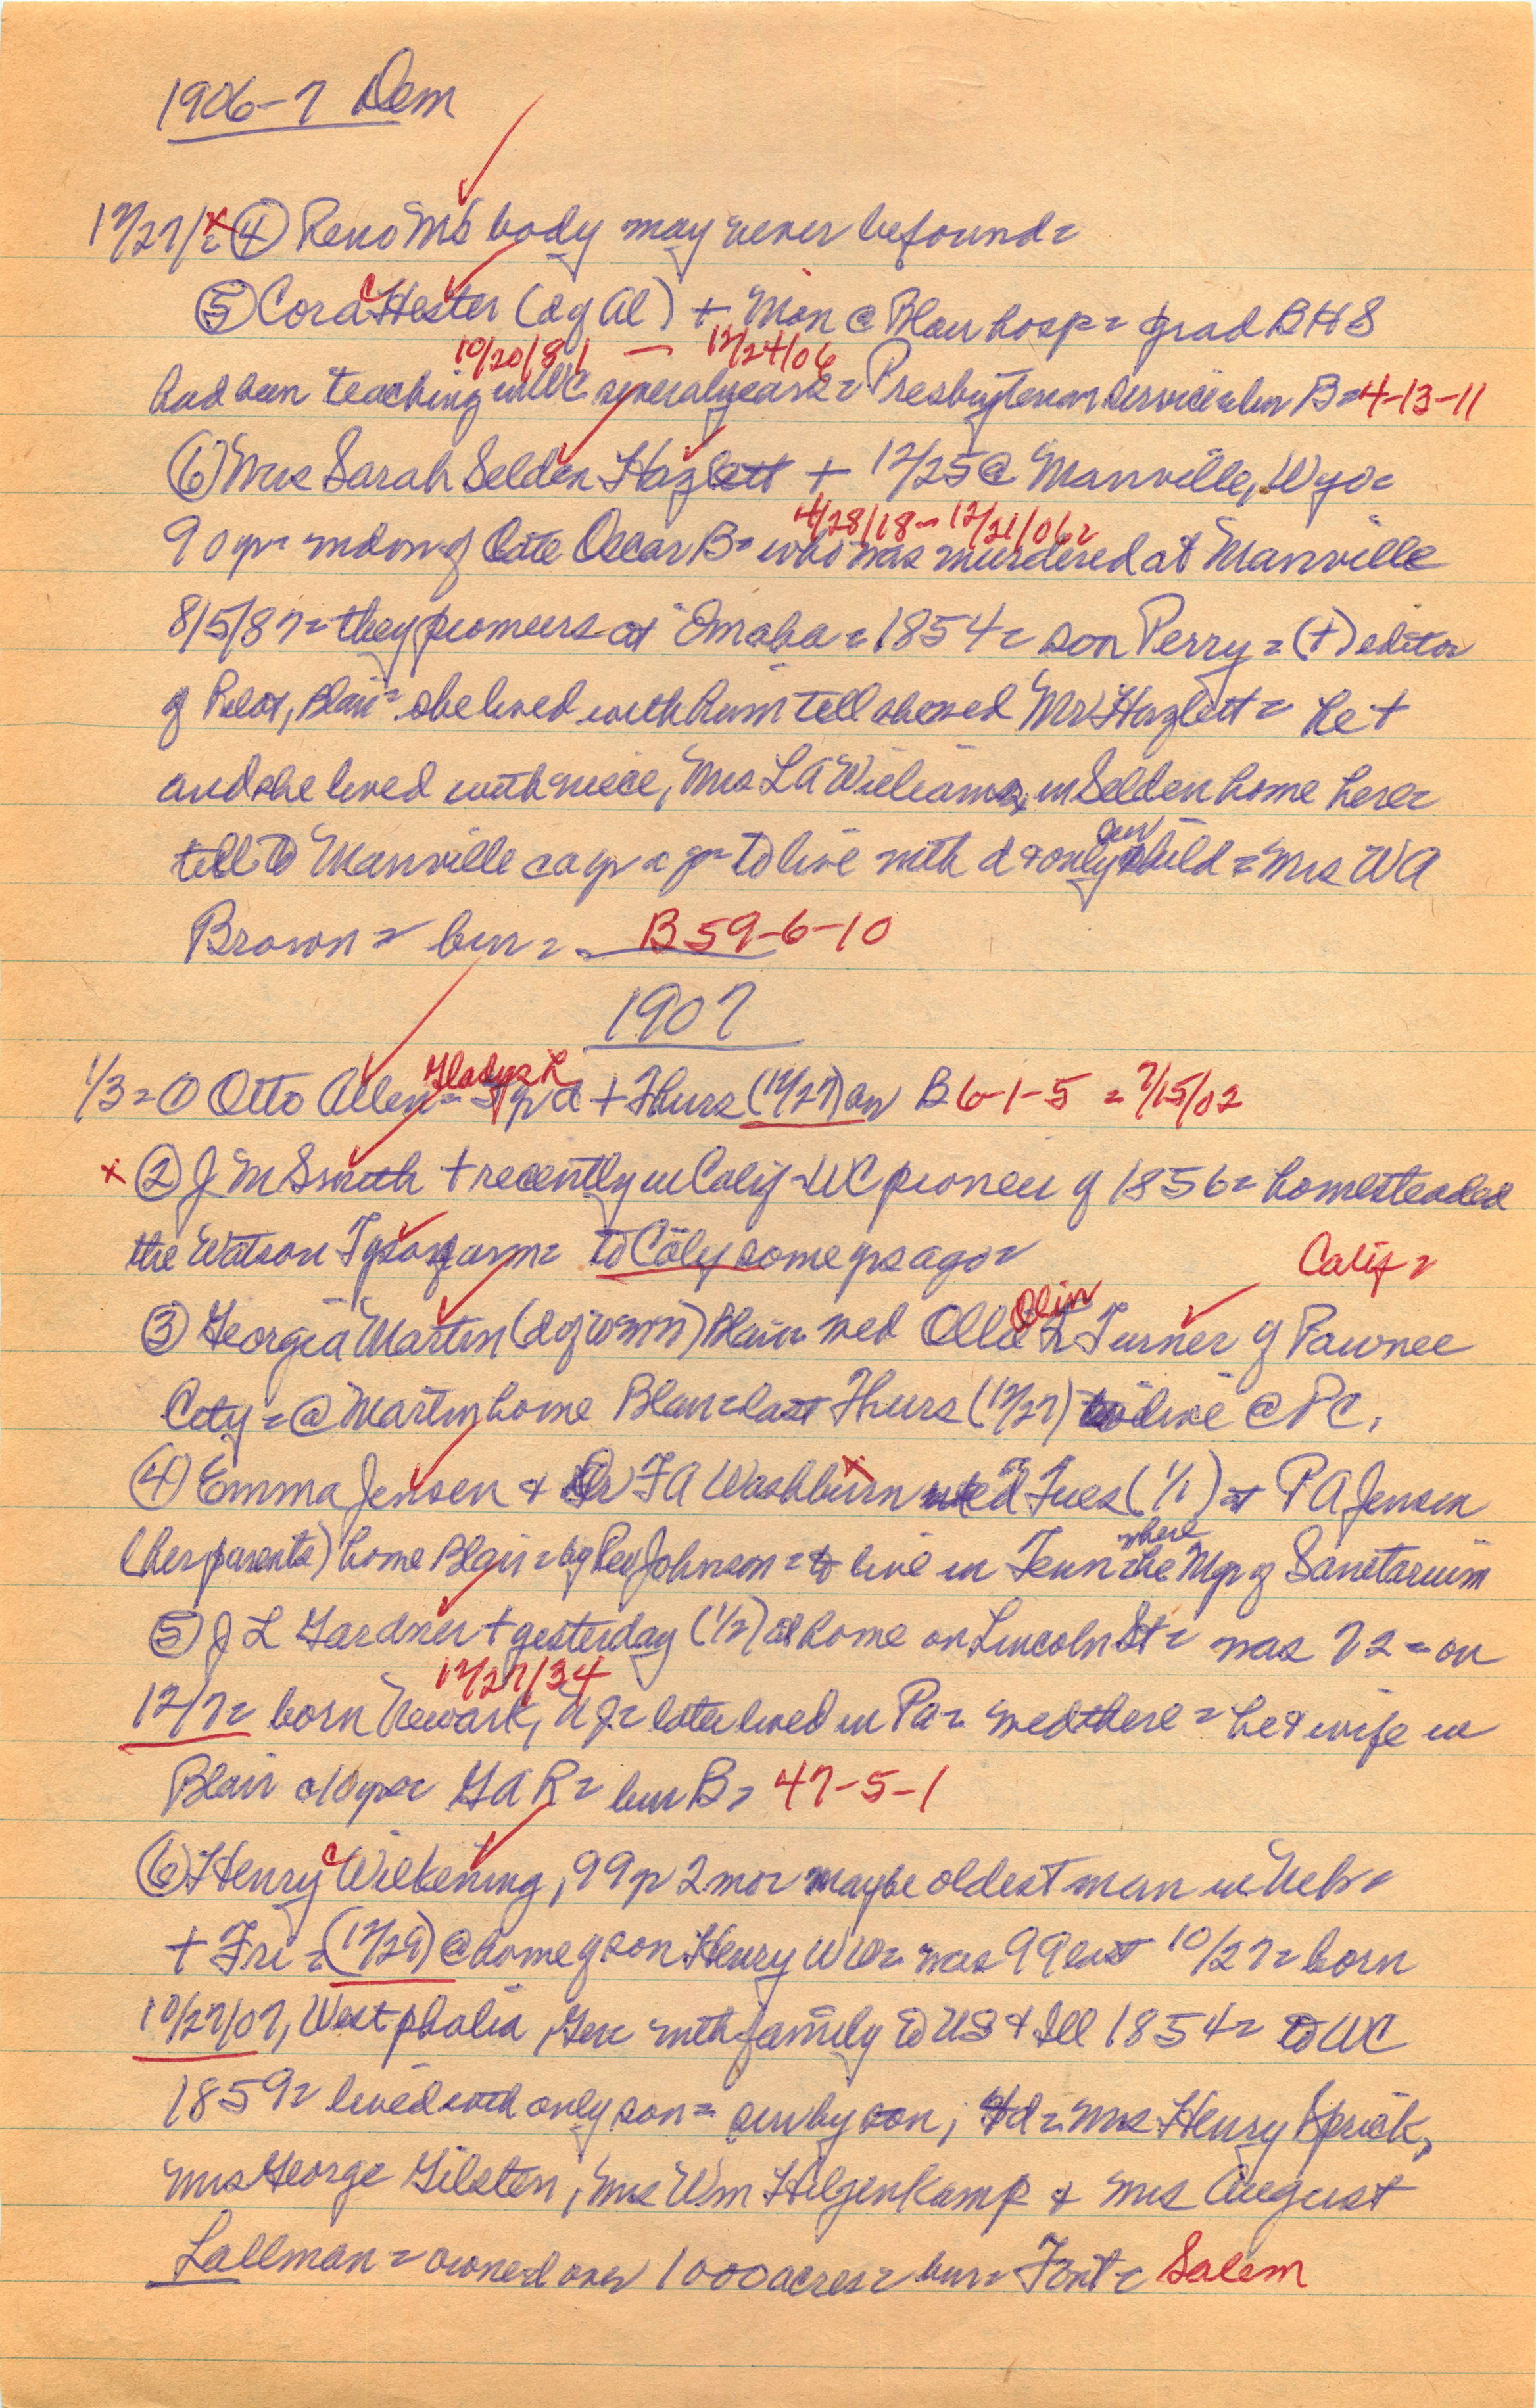 1906-7 Dem
12/27/= x ④ Reno Mo body may never be found=
⑤ Cora C Hester (d of Al) + Mon @ Blair hosp= grad BHS
10/20/81 — 12/24/06
had been teaching in WC several years= Presbyterian service= bur B= 4-13-11
⑥ Mrs Sarah Selden Hazlett + 12/25 @ Manville, Wyo=
28/18- 12/21/06=
90 yr= widow of late Oscar B= who was murdered at Manville
8/5/87= they pioneers at Omaha= 1854= son Perry= (+) editor
of Pilot, Blair= she lived with him till she wed Mr Hazlett= he +
and she lived with niece, Mrs L A Williams, in Selden home here=
till to Manville ca yr ago= to live with d & only child= Mrs WA
Brown= bur= B 59-6-10
1907
Gladys L
1/3= ① Otto Allen= yr d + Thurs (12/27) an B 6-1-5 = 7/15/02
x ② J M Smith + recently in Calif= WC pioneer of 1856= homesteaded
the Watson Tyson farm= to Calif some yrs ago=
Calif=
Olin
③ Georgia Martin (d of W M) Blair wed L Turner of Pawnee
City= @ Martin home Blair= last Thurs (12/27) to live @ PC.
④ Emma Jensen & Dr F A Washburn wed Tues (1/1) at P A Jensen
where
(her parents) home Blair= by Rev Johnson= to live in Tenn he Mgr of Sanetarium
⑤ J L Gardner + yesterday (1/2) at home on Lincoln St= was 72= on
12/27/34
12/7= born Newark, NJ= later lived in Pa= wed there= he & wife in
Blair c10 yr= GAR= bur B= 47-5-1
⑥ Henry C Wilkening, 99 yr 2 mo= maybe oldest man in Neb=
+ Fri= (12/29) @ home of son Henry W= was 99 last 10/27= born
10/27/07, Westphalia, Ger= with family to US & Ill 1854= to WC
1859= lived with only son= surv by son; d= Mrs Henry Sprick,
Mrs George Gilsten, Mrs Wm Hilgenkamp & Mrs August
Lallman= owned over 1000 acres= bur= Font= Salem